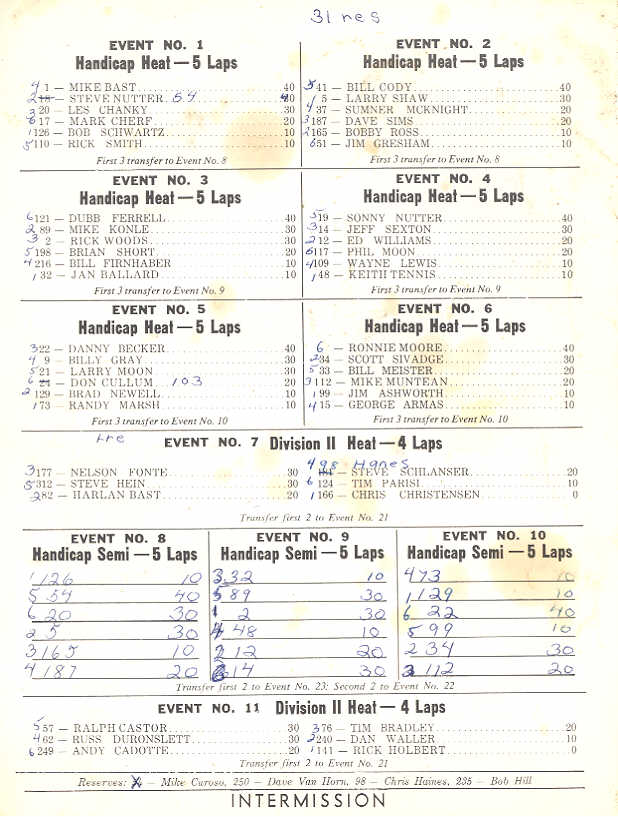 31 nes
EVENT NO. 1
Handicap Heat — 5 Laps
4 1 — MIKE BAST 40
2 18 — STEVE NUTTER 54 40
3 20 — LES CHANKY 30
6 17 — MARK CHERF 20
1 126 — BOB SCHWARTZ 10
5 110 — RICK SMITH 10
First 3 transfer to Event No. 8
EVENT NO. 2
Handicap Heat — 5 Laps
5 41 — BILL CODY 40
1 5 — LARRY SHAW 30
4 37 — SUMNER MCKNIGHT 20
3 187 — DAVE SIMS 20
2 165 — BOBBY ROSS 10
6 51 — JIM GRESHAM 10
First 3 transfer to Event No. 8
EVENT NO. 3
Handicap Heat — 5 Laps
6 121 — DUBB FERRELL 40
2 89 — MIKE KONLE 30
3 2 — RICK WOODS 30
5 198 — BRIAN SHORT 20
4 216 — BILL FIRNHABER 10
1 32 — JAN BALLARD 10
First 3 transfer to Event No. 9
EVENT NO. 4
Handicap Heat — 5 Laps
5 19 — SONNY NUTTER 40
3 14 — JEFF SEXTON 30
2 12 — ED WILLIAMS 20
6 117 — PHIL MOON 20
4 109 — WAYNE LEWIS 10
1 48 — KEITH TENNIS 10
First 3 transfer to Event No. 9
EVENT NO. 5
Handicap Heat — 5 Laps
3 22 — DANNY BECKER 40
4 9 — BILLY GRAY 30
5 21 — LARRY MOON 30
6 24 — DON CULLUM 103 20
2 129 — BRAD NEWELL 10
1 73 — RANDY MARSH 10
First 3 transfer to Event No. 10
EVENT NO. 6
Handicap Heat — 5 Laps
6 — RONNIE MOORE 40
2 34 — SCOTT SIVADGE 30
5 33 — BILL MEISTER 20
3 112 — MIKE MUNTEAN 20
1 99 — JIM ASHWORTH 10
4 15 — GEORGE ARMAS 10
First 3 transfer to Event No. 10
EVENT NO. 7 Division II Heat — 4 Laps
3 177 — NELSON FONTE 30
5 312 — STEVE HEIN 30
2 82 — HARLAN BAST 20
4 98 Hanes
STEVE SCHLANSER 20
6 124 — TIM PARISI 10
1 166 — CHRIS CHRISTENSEN 0
Transfer first 2 to Event No. 21
EVENT NO. 8
Handicap Semi — 5 Laps
1 126 10
5 54 40
6 20 30
2 5 30
3 165 10
4 187 20
EVENT NO. 9
Handicap Semi — 5 Laps
3 32 10
5 89 30
1 2 30
4 48 10
2 12 20
6 14 30
EVENT NO. 10
Handicap Semi — 5 Laps
4 73 10
1 129 10
6 22 40
5 99 10
2 34 30
3 112 20
Transfer first 2 to Event No. 23: Second 2 to Event No. 22
EVENT NO. 11 Division II Heat — 4 Laps
5 57 — RALPH CASTOR 30
4 62 — RUSS DURONSLETT 30
6 249 — ANDY CADOTTE 20
3 76 — TIM BRADLEY 20
2 240 — DAN WALLER 10
1 141 — RICK HOLBERT 0
Transfer first 2 to Event No. 21
Reserves: — Mike Curoso, 250 — Dave Van Horn, 98 — Chris Haines, 235 — Bob Hill
INTERMISSION